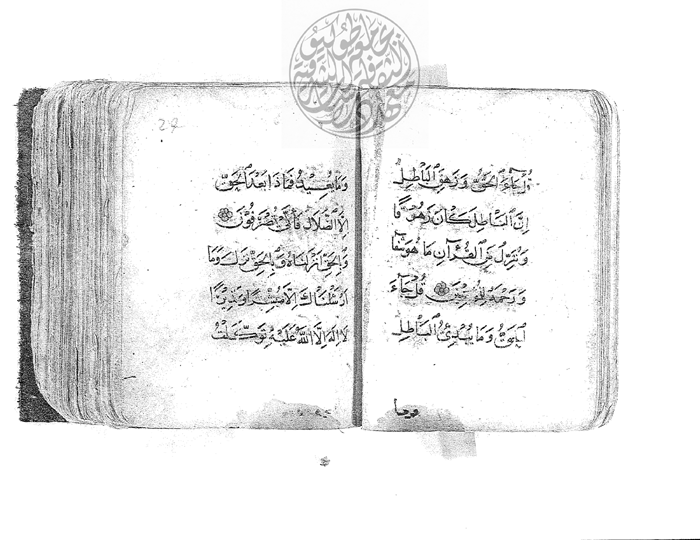 قُلْ جَآءَ الْحَقُّ وَزَهَقَ الْبَاطِلُ
اِنَّ الْبَاطِلَ كَانَ زَهُوقًا
وَنُنَزِّلُ مِنَ الْقُرْآنِ مَا هُوَ شِفَآ
وَرَحْمَةٌ لِلْمُؤْمِنِينَ قُلْ جَآءَ
الْحَقُّ وَمَا يُبْدِئُ الْبَاطِلُ
وما
وَمَا يُعِيدُ فَمَاذَا بَعْدَ الْحَقِّ
اِلَّا الضَّلَالُ فَأَنَّى تُصْرَفُونَ
وَبِالْحَقِّ اَنْزَلْنَاهُ وَبِالْحَقِّ نَزَلَ وَمَا
اَرْسَلْنَاكَ اِلَّا مُبَشِّرًا وَنَذِيرًا
لَا اِلٰهَ اِلَّا اللّٰهُ عَلَيْهِ تَوَكَّلْتُ